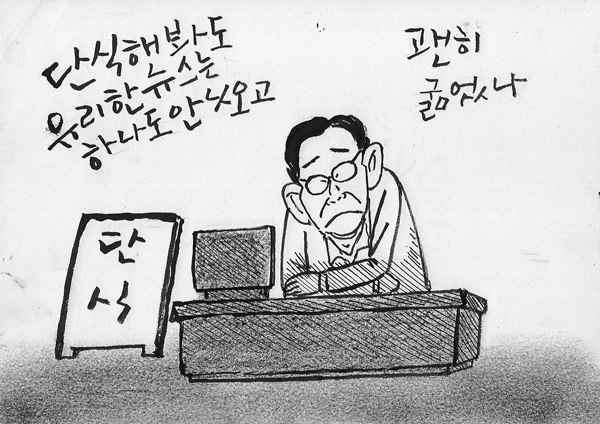 단식해봐도
유리한뉴스는
하나도안나오고
괜히
굶었나
단
식